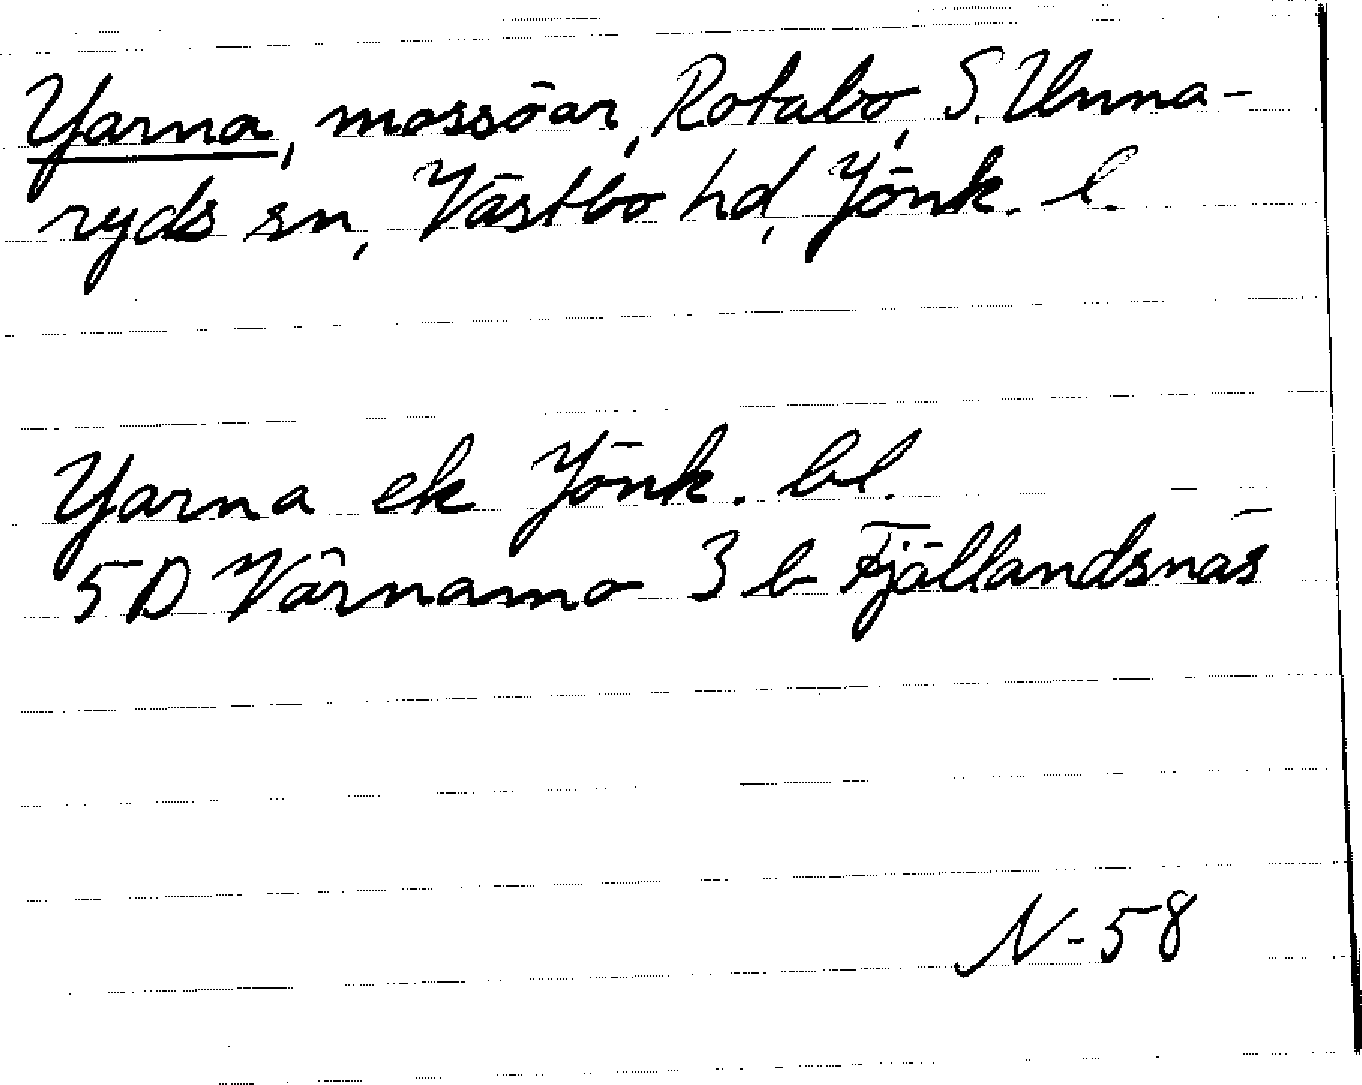 Yarna, mossöar, Rotabo, S. Unna-
ryds sn, Västbo hd, Jönk. l.
Yarna ek Jönk. bl.
5D Värnamo 3 b Fjällandsnäs
N-58